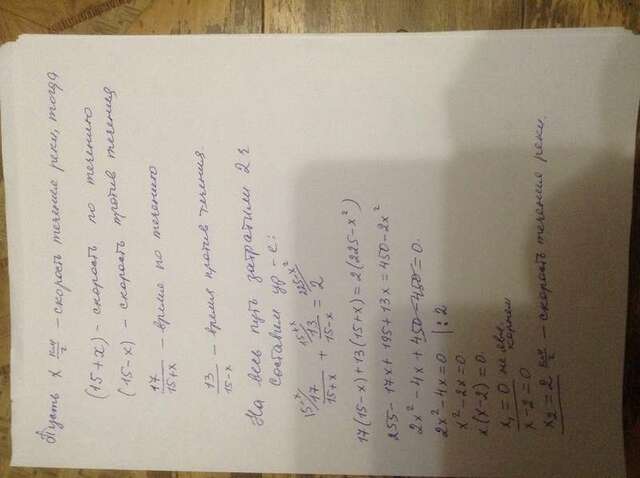 Пусть x км/г – скорость течения реки, тогда
(15+x) – скорость по течению
(15-x) – скорость против течения
17/15+x – время по течению
13/15-x – время против течения
На весь путь затратили 2 г
Составим ур-е:
15-x/ 17/15+x + 15+x/ 13/15-x = 225-x²/ 2
17(15-x)+13(15+x)=2(225-x²)
255-17x+195+13x=450-2x²
2x²-4x+450-450=0
2x²-4x=0 |:2
x²-2x=0
x(x-2)=0
x₁=0 не явл. корнем
x-2=0
x₂=2 км/г – скорость течения реки.